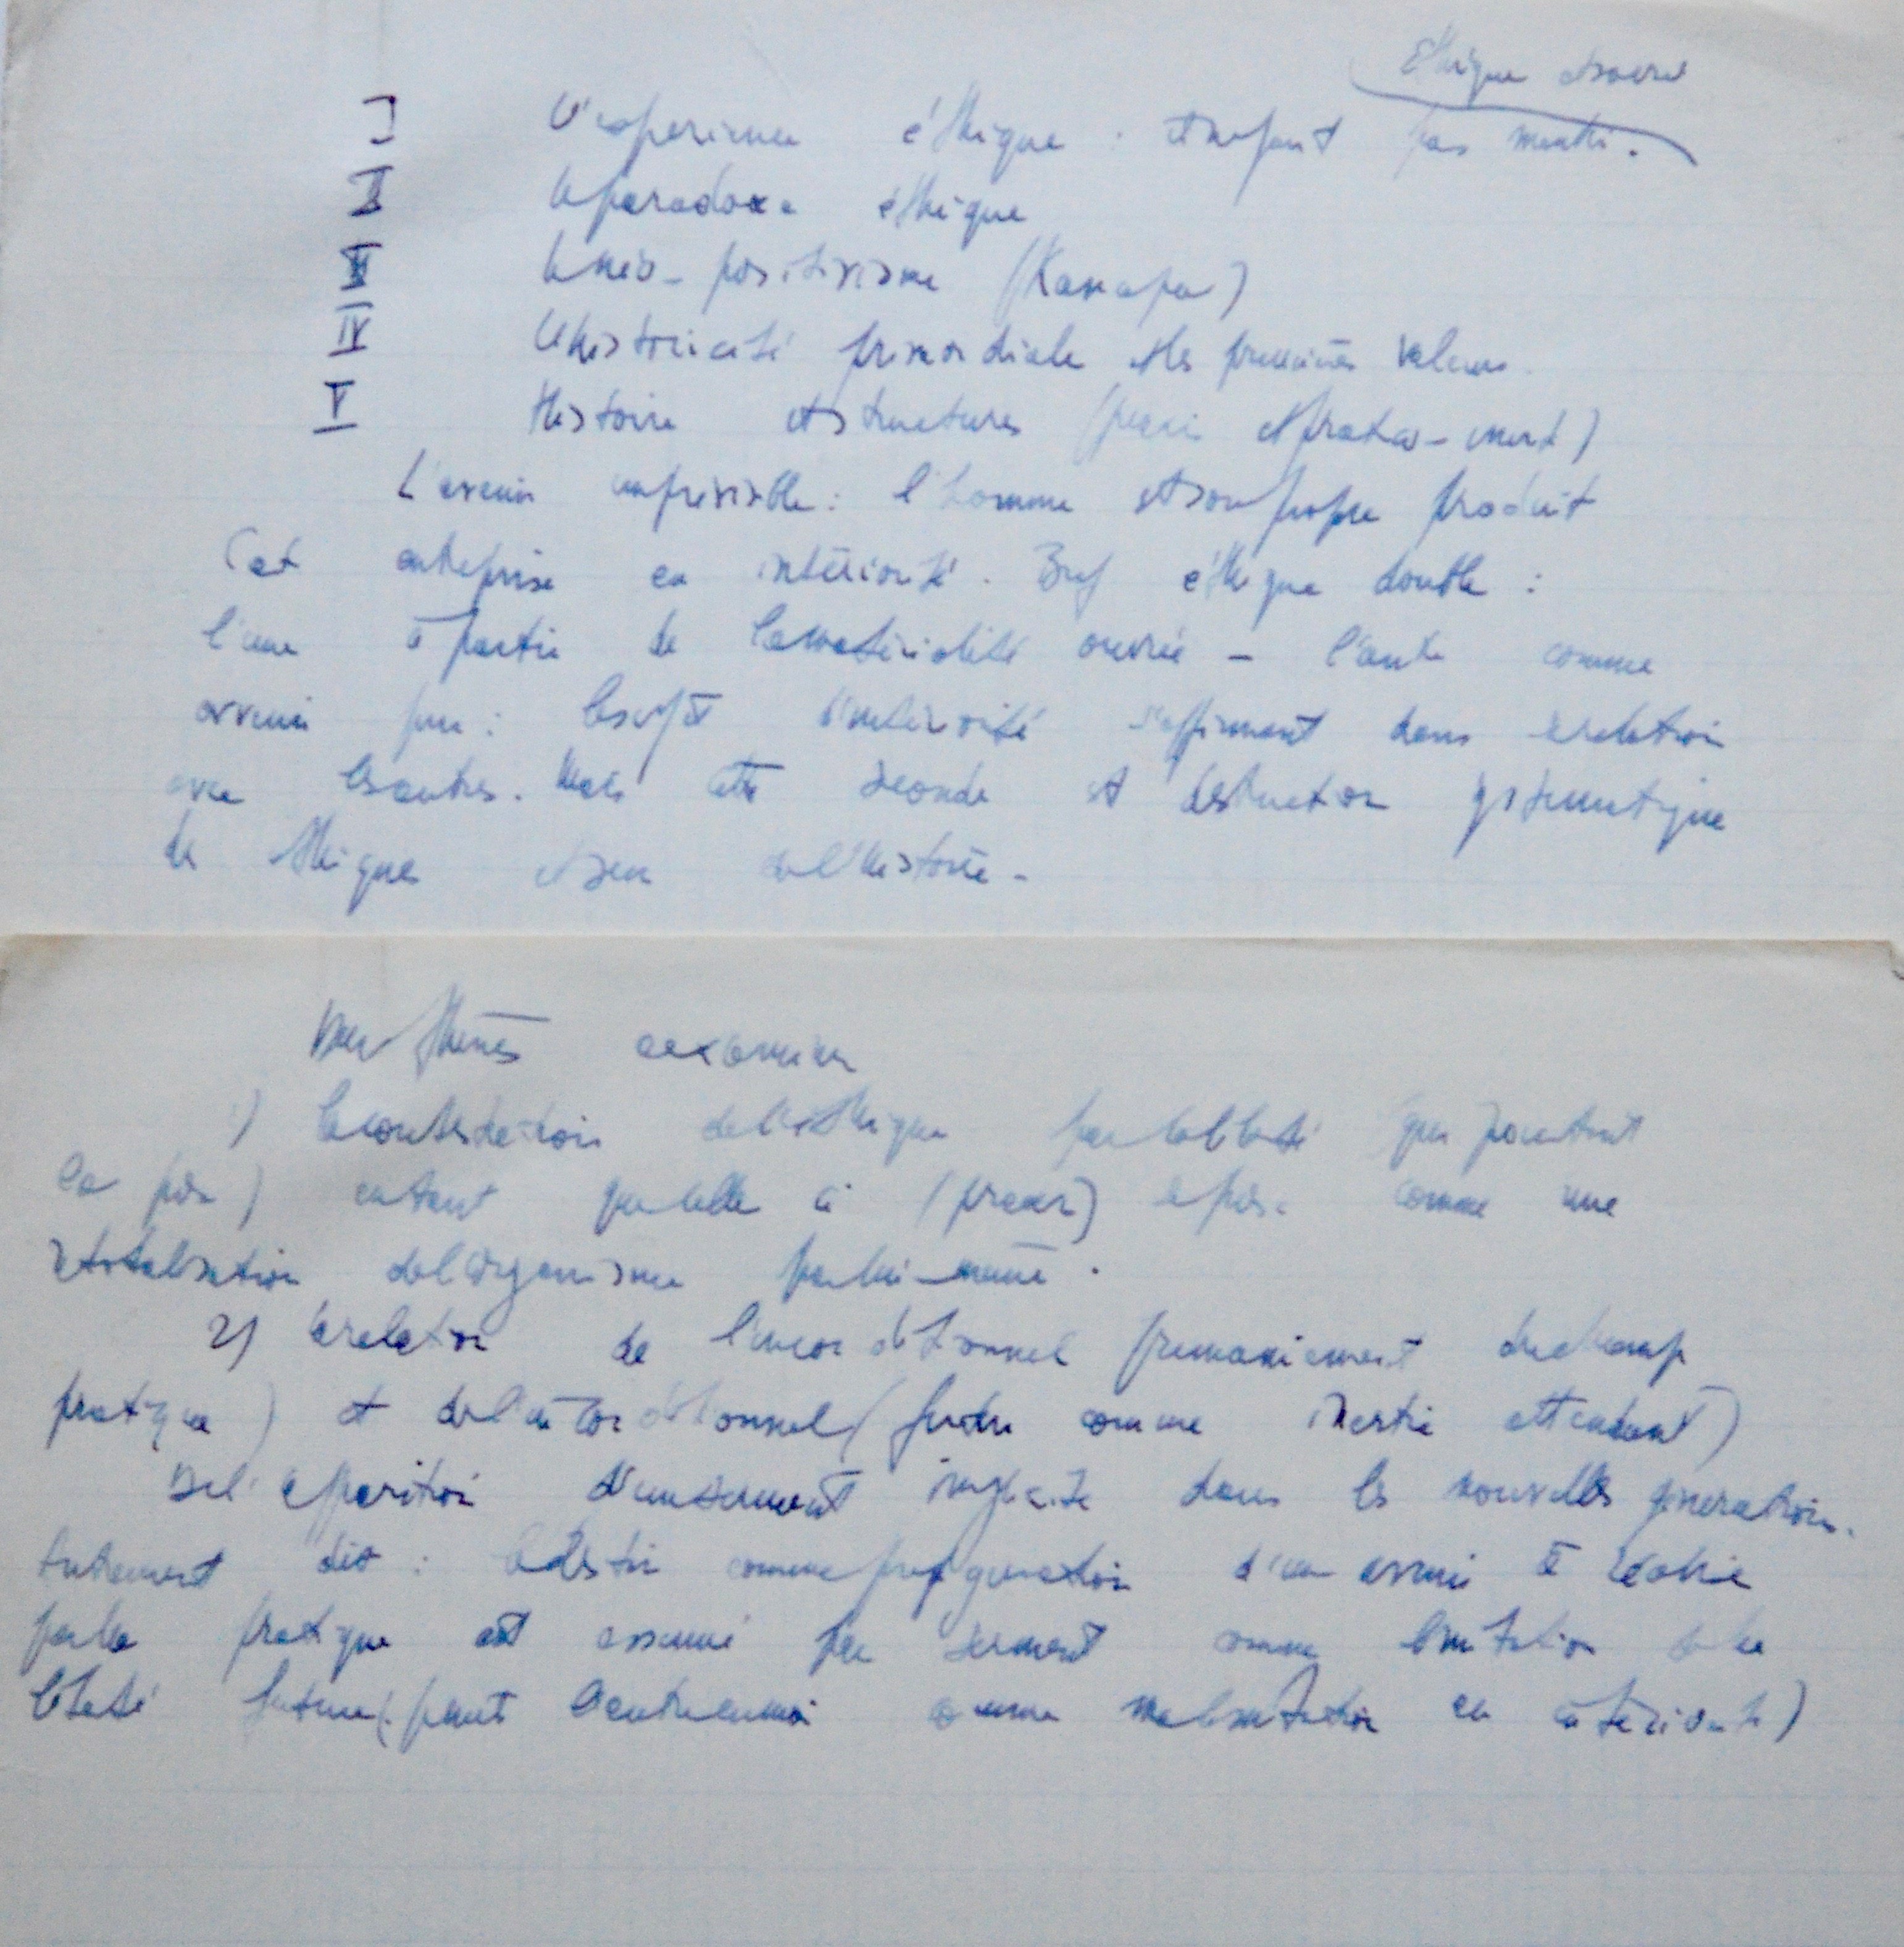 Ethique
I L'experience éthique : il ne faut pas mentir.
II le paradoxe éthique
III le néo-positivisme (Kanapa)
IV L'historicité primordiale et les premières valeurs.
V Histoire et structures (praxis et pratico-inerte)
L'avenir imprévisible : l'homme est son propre produit
Cet entreprise en intériorité. Bref éthique double :
l'une à partir de la matérialité ouvrée - l'autre comme
avenir pur : le sujet d'intériorité s'affirmant dans sa relation
avec les autres. Mais cette seconde est destruction systematique
de éthiques de l'histoire -
thèmes à examiner
1) la contestation de l'éthique par la liberté (qui pourtant
la pose) en tant que celle-ci (praxis) se pose comme une
retotalisation de l'organisme par lui-même.
2) la relation de l'inconditionnel (remaniement du champ
pratique) et de l'inconditionnel (futur comme inertie attendant)
De l'apparition d'un serment implicite dans les nouvelles generations.
Autrement dit : comme préfiguration d'un avenir à réaliser
par la pratique est assumé par serment comme limitation de la
liberté future (: comme en intériorité)